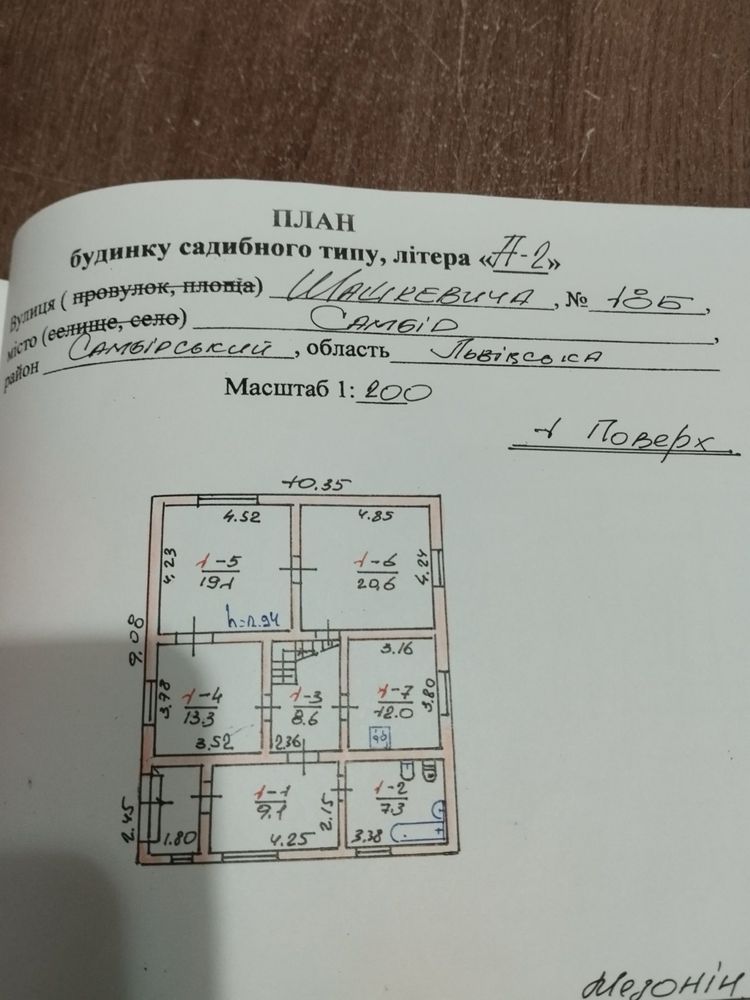 ПЛАН
будинку садибного типу, літера «А-2»
Вулиця (провулок, площа) Шашкевича, № 18Б,
місто (селище, село) Самбір,
район Самбірський, область Львівська
Масштаб 1:200
1 Поверх
10.35
4.52 4.85
4.23 1-5 19.1 1-6 20,6 4.24
h=2.94
9.08
3.16
3.78 1-4 13.3 1-3 8.6 1-7 12.0 3.80
3.52 2.36
2.45 1-1 9.1 2.15 1-2 7.3
1.80 4.25 3.38
Мезонін